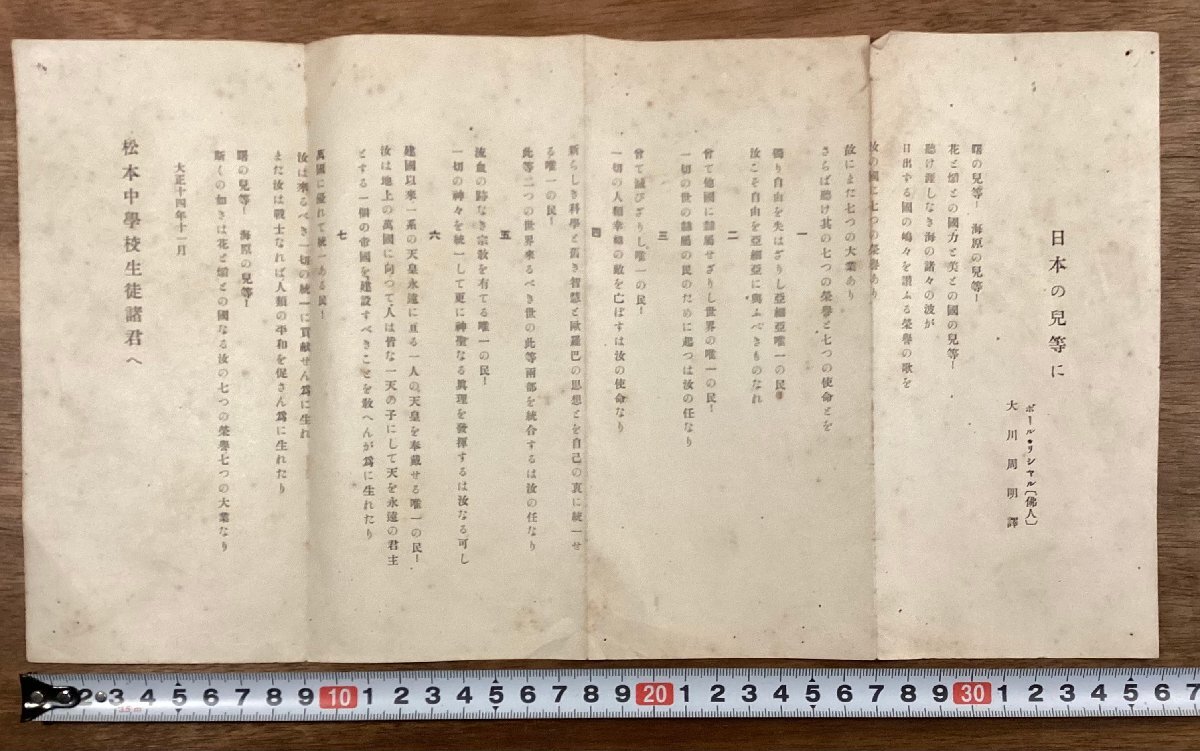 日本の兒等に
ポール・リシャル〔佛人〕
大川周明譯
曙の兒等！　海原の兒等！
花と焰との國力と美との國の兒等！
聽け涯しなき海の諸々の波が
日出づる國の嶋々を讃ふる榮譽の歌を
汝の國に七つの榮譽あり
故にまた七つの大業あり
さらば聽け其の七つの榮譽と七つの使命とを
一
獨り自由を失はざりし亞細亞唯一の民！
汝こそ自由を亞細亞に與ふべきものなれ
二
曾て他國に隸屬せざりし世界の唯一の民！
一切の世の隸屬の民のために起つは汝の任なり
三
曾て滅びざりし唯一の民！
一切の人類幸福の敵を亡ぼすは汝の使命なり
四
新らしき科學と舊き智慧と歐羅巴の思想とを自己の衷に統一せ
る唯一の民！
此等二つの世界來るべき世の此等兩部を統合するは汝の任なり
五
流血の跡なき宗敎を有てる唯一の民！
一切の神々を統一して更に神聖なる眞理を發揮するは汝なる可し
六
建國以來一系の天皇永遠に亘る一人の天皇を奉戴せる唯一の民！
汝は地上の萬國に向つて人は皆な一天の子にして天を永遠の君主
とする一個の帝國を建設すべきことを敎へんが爲に生れたり
七
萬國に優れて統一ある民！
汝は來るべき一切の統一に貢獻せん爲に生れ
また汝は戰士なれば人類の平和を促さん爲に生れたり
曙の兒等！　海原の兒等！
斯くの如きは花と焰との國なる汝の七つの榮譽七つの大業なり
大正十四年十一月
松本中學校生徒諸君へ
2 3 4 5 6 7 8 9 10 1 2 3 4 5 6 7 8 9 20 1 2 3 4 5 6 7 8 9 30 1 2 3 4 5 6 7
3.5m